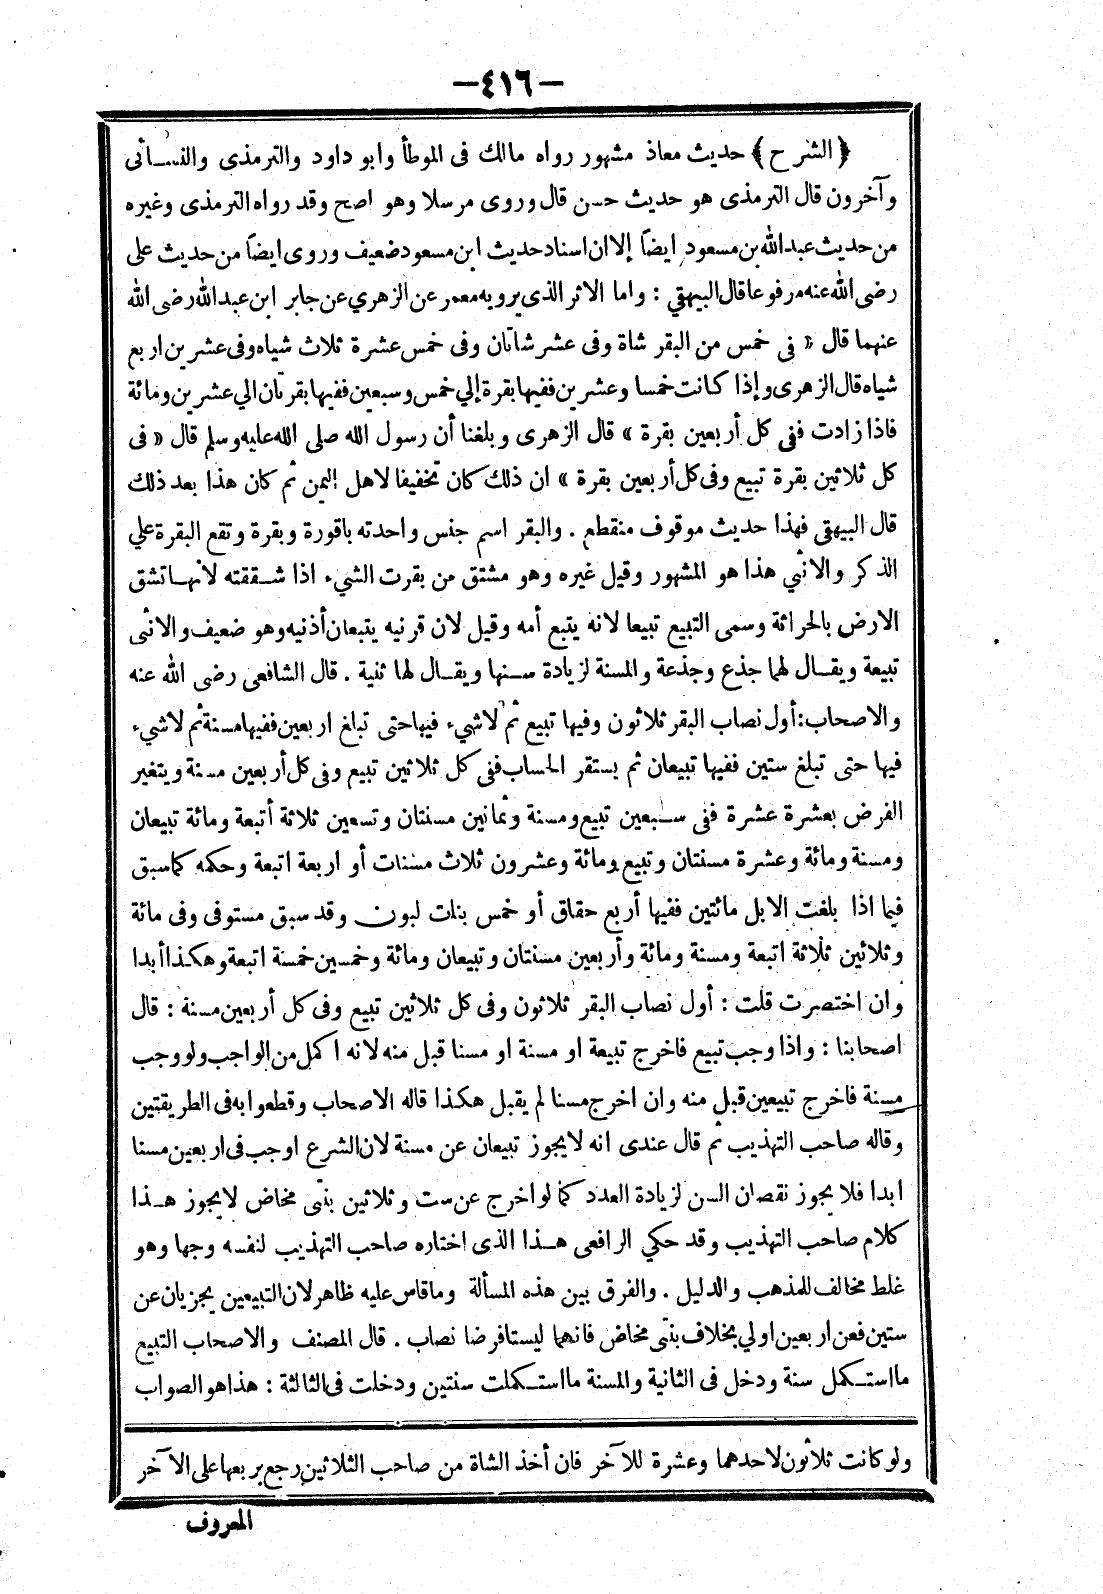 —٤١٦—
﴿الشرح﴾ حديث معاذ مشهور رواه مالك فى الموطأ وابو داود والترمذى والنسائى
وآخرون قال الترمذى هو حديث حسن قال وروى مرسلا وهو اصح وقد رواه الترمذى وغيره
من حديث عبد الله بن مسعود ايضاً إلا ان اسناد حديث ابن مسعود ضعيف وروى ايضاً من حديث على
رضى الله عنه مرفوعا قال البيهقي : واما الاثر الذى يرويه معمر عن الزهري عن جابر ابن عبد الله رضى الله
عنهما قال « فى خمس من البقر شاة وفى عشر شاتان وفى خمس عشرة ثلاث شياه وفى عشرين اربع
شياه قال الزهرى وإذا كانت خمسا وعشرين ففيها بقرة إلي خمس وسبعين ففيها بقرتان الي عشرين ومائة
فاذا زادت ففى كل أربعين بقرة » قال الزهرى وبلغنا أن رسول الله صلى الله عليه وسلم قال « فى
كل ثلاثين بقرة تبيع وفى كل أربعين بقرة » ان ذلك كان تخفيفا لاهل اليمن ثم كان هذا بعد ذلك
قال البيهقى فهذا حديث موقوف منقطع . والبقر اسم جنس واحدته باقورة وبقرة وتقع البقرة علي
الذكر والانثي هذا هو المشهور وقيل غيره وهو مشتق من بقرت الشيء اذا شققته لانها تشق
الارض بالحراثة وسمى التبيع تبيعا لانه يتبع أمه وقيل لان قرنيه يتبعان أذنيه وهو ضعيف والانثى
تبيعة ويقال لهما جذع وجذعة والمسنة لزيادة سنها ويقال لها ثنية . قال الشافعى رضى الله عنه
والاصحاب: أول نصاب البقر ثلاثون وفيها تبيع ثم لا شيء فيها حتى تبلغ اربعين ففيها مسنة ثم لا شيء
فيها حتى تبلغ ستين ففيها تبيعان ثم يستقر الحساب ففى كل ثلاثين تبيع وفى كل أربعين مسنة ويتغير
الفرض بعشرة عشرة ففى سبعين تبيع ومسنة وثمانين مسنتان وتسعين ثلاثة أتبعة ومائة تبيعان
ومسنة ومائة وعشرة مسنتان وتبيع ومائة وعشرون ثلاث مسنات أو اربعة اتبعة وحكمه كما سبق
فيما اذا بلغت الابل مائتين ففيها أربع حقاق أو خمس بنات لبون وقد سبق مستوفى وفى مائة
وثلاثين ثلاثة اتبعة ومسنة ومائة وأربعين مسنتان وتبيعان ومائة وخمسين خمسة اتبعة وهكذا أبدا
وان اختصرت قلت : أول نصاب البقر ثلاثون وفى كل ثلاثين تبيع وفى كل أربعين مسنة : قال
اصحابنا : واذا وجب تبيع فاخرج تبيعة او مسنة او مسنا قبل منه لانه اكمل من الواجب ولو وجب
مسنة فاخرج تبيعين قبل منه وان اخرج مسنا لم يقبل هكذا قاله الاصحاب وقطعوا به فى الطريقتين
وقاله صاحب التهذيب ثم قال عندى انه لا يجوز تبيعان عن مسنة لان الشرع اوجب فى اربعين مسنا
ابدا فلا يجوز نقصان السن لزيادة العدد كما لو اخرج عن ست وثلاثين بنتى مخاض لا يجوز هذا
كلام صاحب التهذيب وقد حكي الرافعى هذا الذى اختاره صاحب التهذيب لنفسه وجها وهو
غلط مخالف للمذهب والدليل . والفرق بين هذه المسألة وما قاس عليه ظاهر لان التبيعين يجزيان عن
ستين فعن اربعين اولي بخلاف بنتى مخاض فانهما ليستا فرضا نصاب . قال المصنف والاصحاب التبيع
ما استكمل سنة ودخل فى الثانية والمسنة ما استكملت سنتين ودخلت فى الثالثة : هذا هو الصواب
ولو كانت ثلاثون لاحدهما وعشرة للآخر فان أخذ الشاة من صاحب الثلاثين رجع بربعها على الآخر
المعروف